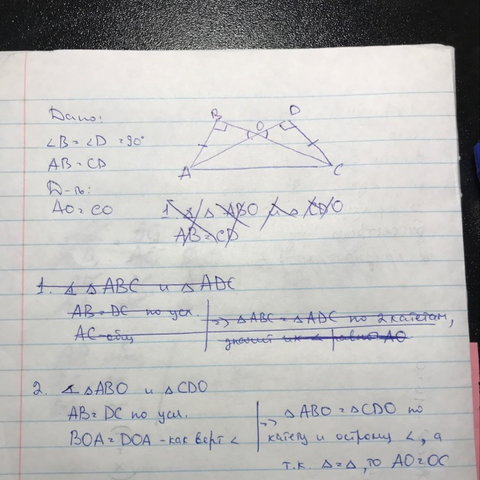 Дано:
∠B = ∠D = 90°
AB = CD
Д-ть:
AO = CO
B
D
O
A
C
1. ∡ △ ABO и △ CDO
AB = CD
1. ∡ △ ABC и △ ADC
AB = DC по усл.
AC - общ
=> △ ABC = △ ADC по 2 катетам,
значит их ∠ равно AO
2. ∡ △ ABO и △ CDO
AB = DC по усл.
BOA = DOA - как верт ∠
=> △ ABO = △ CDO по
катету и острому ∠, а
т.к. △ = △, то AO = OC